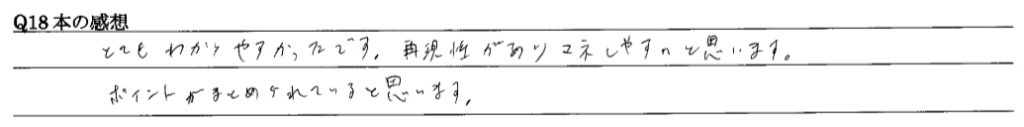 Q18本の感想
とてもわかりやすかったです。再現性がありマネしやすいと思います。
ポイントがまとめられていると思います。